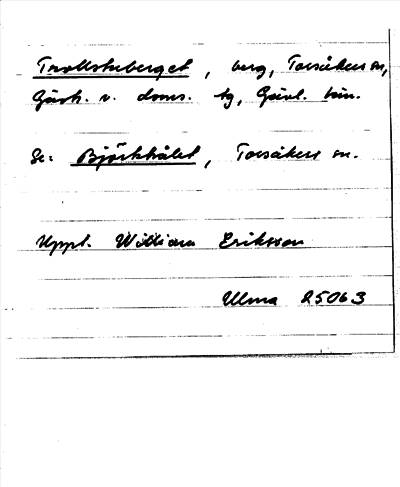 Trollstuberget, berg, Torsåkers sn,
Gästr. v. doms. tg, Gävl. län.
Se: Björkhålet, Torsåkers sn.
Uppt. William Eriksson
Ulma 25063